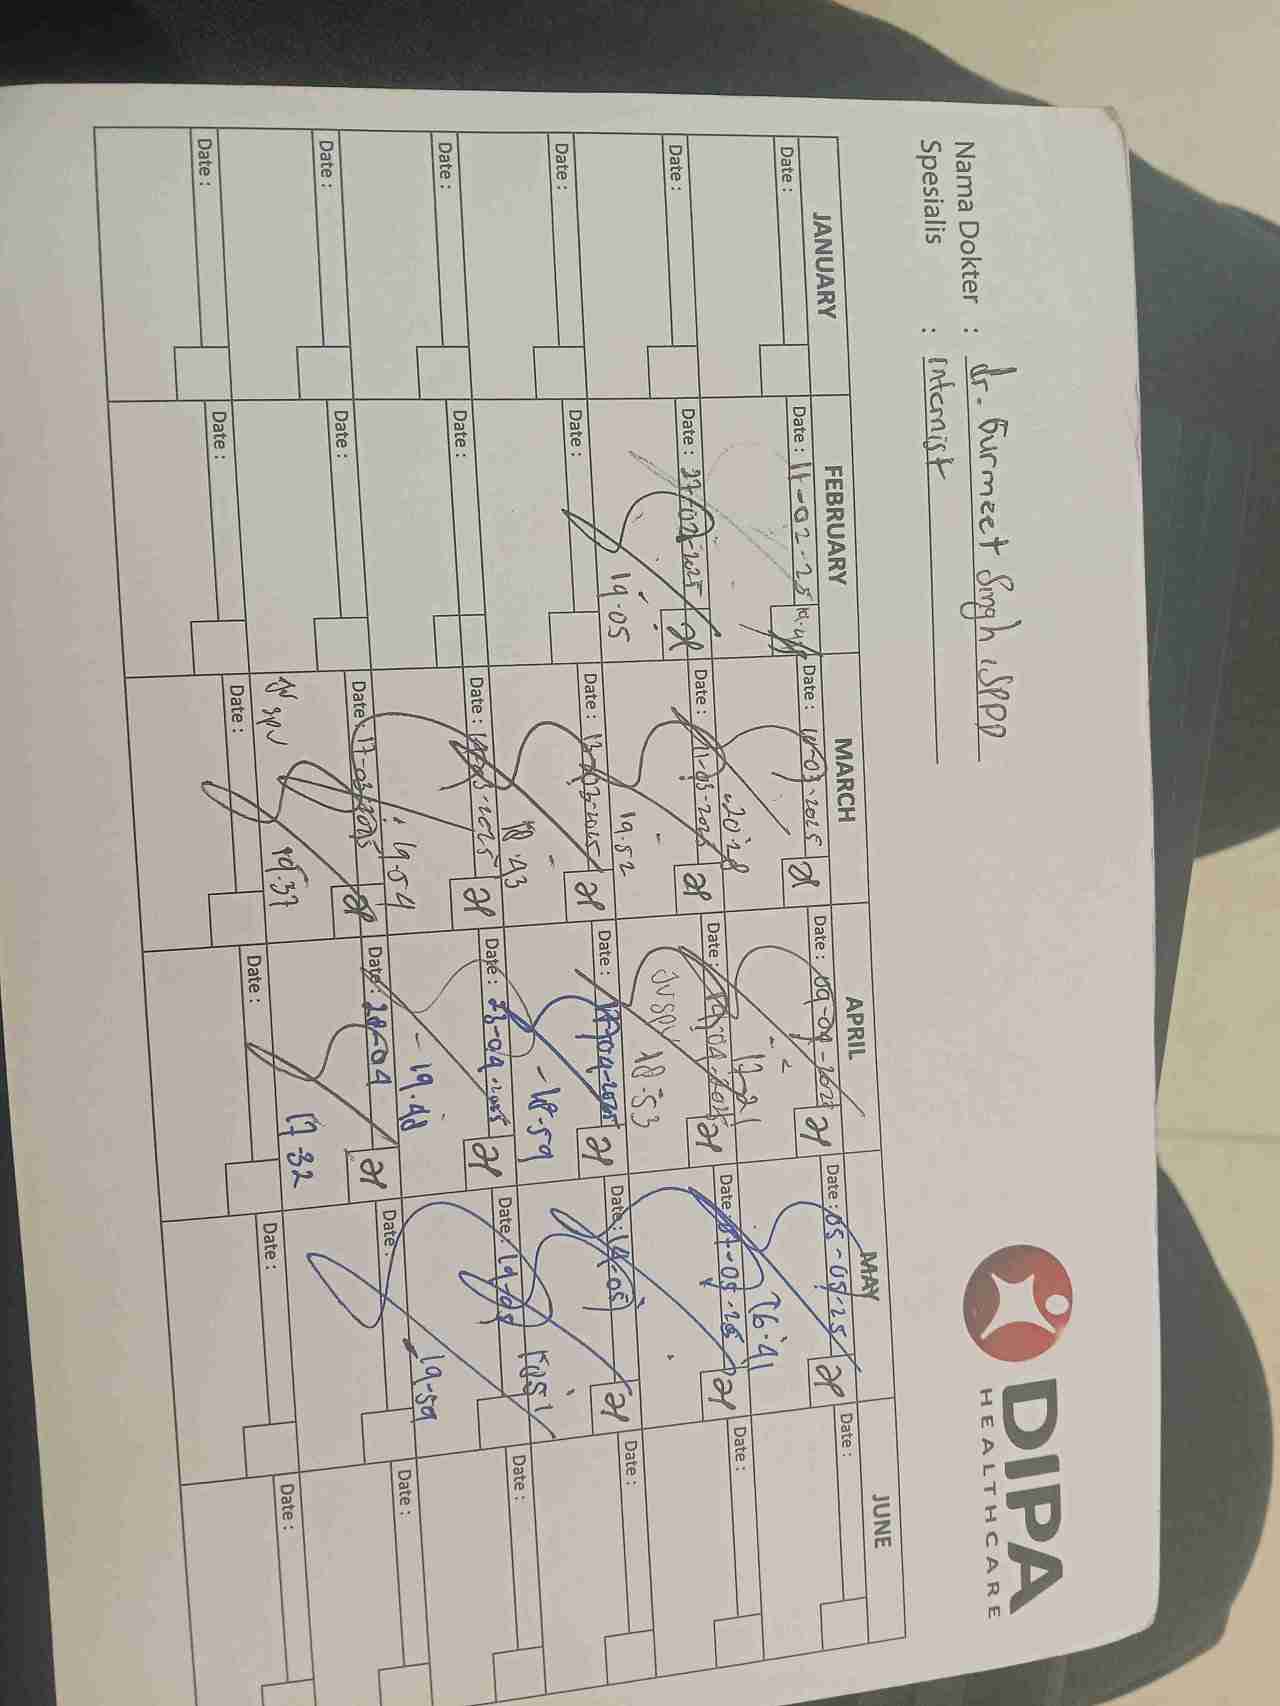 DIPA
HEALTHCARE
Nama Dokter : dr. Gurmeet Singh, SpPD
Spesialis : Internist
JANUARY FEBRUARY MARCH APRIL MAY JUNE
Date : Date : 17-02-25 Date : 10-03-2025 Date : 09-04-2025 Date : 05-05-25 Date :
20.28 17-21 16.41
Date : Date : 27-02-2025 Date : 11-03-2025 Date : Date : 07-05-25 Date :
19.05 19.52 JV SPV 18.53
Date : Date : Date : 13-03-2025 Date : 17-04-2025 Date : 14-05 Date :
18.43 18-59
Date : Date : Date : Date : 23-04-2025 Date : 19-05 Date :
19.54 19.48 19-59
Date : Date : Date : 17-03-2025 Date : 28-04 Date : Date :
JV SPV 19.37 17-32
Date : Date : Date : Date : Date : Date :